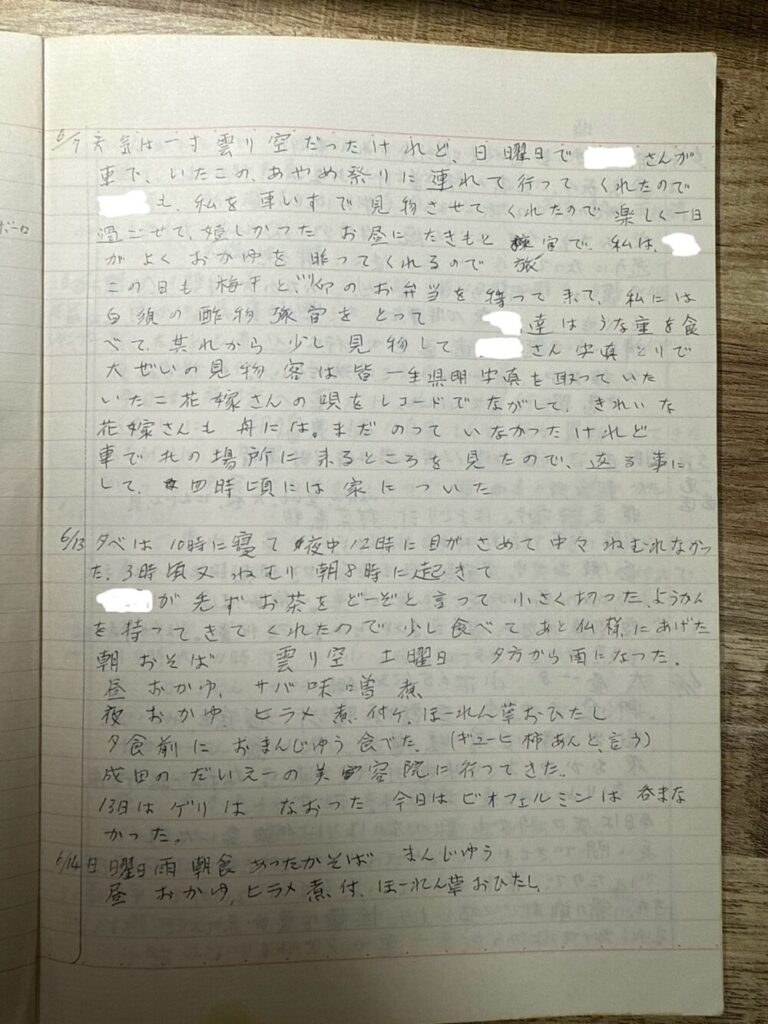 6/7 天気は一寸雲り空だったけれど、日曜日で さんが
車で、いたこの、あやめ祭りに連れて行ってくれたので
も、私を車いすで見物させてくれたので楽しく一日
過ごせて、嬉しかった お昼にたきもと旅官で、私は、
がよくおかゆを作ってくれるので
この日も梅干と、のお弁当を持って来て、私には
白須の酢物旅官をとって 達はうな重を食
べて、其れから少し見物して さん写真とりで
大ぜいの見物客は皆一生県明写真を取っていた
いたこ花嫁さんの唄をレコードでながして、きれいな
花嫁さんも舟には。まだのっていなかったけれど
車で其の場所に来るところを見たので、返る事に
して、四時頃には家についた
6/13 夕べは10時に寝て夜中12時に目がさめて中々ねむれなかっ
た、3時頃又ねむり朝8時に起きて
が先ずお茶をどーぞと言って小さく切った、ようかん
を持ってきてくれたので少し食べてあと仏様にあげた
朝 おそば 雲り空 土曜日 夕方から雨になった。
昼 おかゆ、サバ味噌煮
夜 おかゆ、ヒラメ煮付ケ、ほーれん草おひたし
夕食前におまんじゅう食べた。(ギューヒ柿あんと言う)
成田のだいえーの美容院に行ってきた。
13日はゲリはなおった 今日はビオフェルミンは呑まな
かった。
6/14日 日曜日雨 朝食 あったかそば まんじゅう
昼 おかゆ、ヒラメ煮付、ほーれん草おひたし